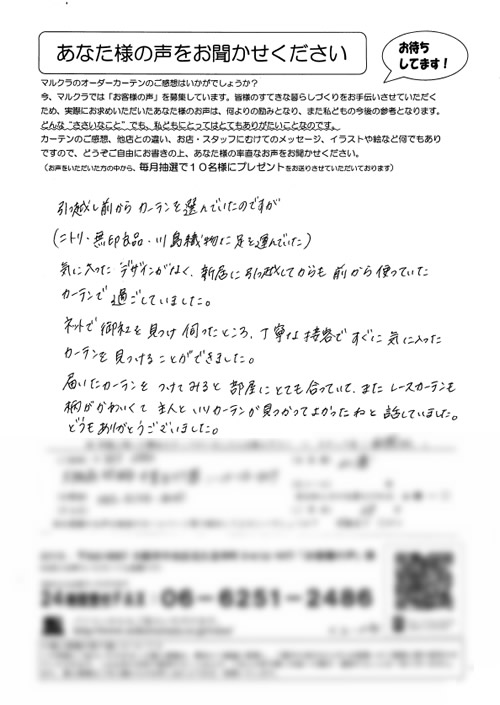 あなた様の声をお聞かせください
お待ち
してます！
マルクラのオーダーカーテンのご感想はいかがでしょうか？
今、マルクラでは「お客様の声」を募集しています。皆様のすてきな暮らしづくりをお手伝いさせていただく
ため、実際にお求めいただいたあなた様のお声は、何よりの励みとなり、また私どもの今後の参考となります。
どんな"ささいなこと"でも、私どもにとってはとてもありがたいことなのです。
カーテンのご感想、他店との違い、お店・スタッフにむけてのメッセージ、イラストや絵など何でもあり
ですので、どうぞご自由にお書きの上、あなた様の率直なお声をお聞かせください。
（お声をいただいた方の中から、毎月抽選で10名様にプレゼントをお送りさせていただいております）
引越し前からカーテンを選んでいたのですが
(ニトリ・無印良品・川島織物に足を運んでいた)
気に入ったデザインがなく、新居に引越してからも前から使っていた
カーテンで過ごしていました。
ネットで御社を見つけ伺ったところ、丁寧な接客ですぐに気に入った
カーテンを見つけることができました。
届いたカーテンをつけてみると部屋にとても合っていて、またレースカーテンも
柄がかわいくて主人といいカーテンが見つかってよかったねと話していました。
どうもありがとうございました。
06-6251-2486